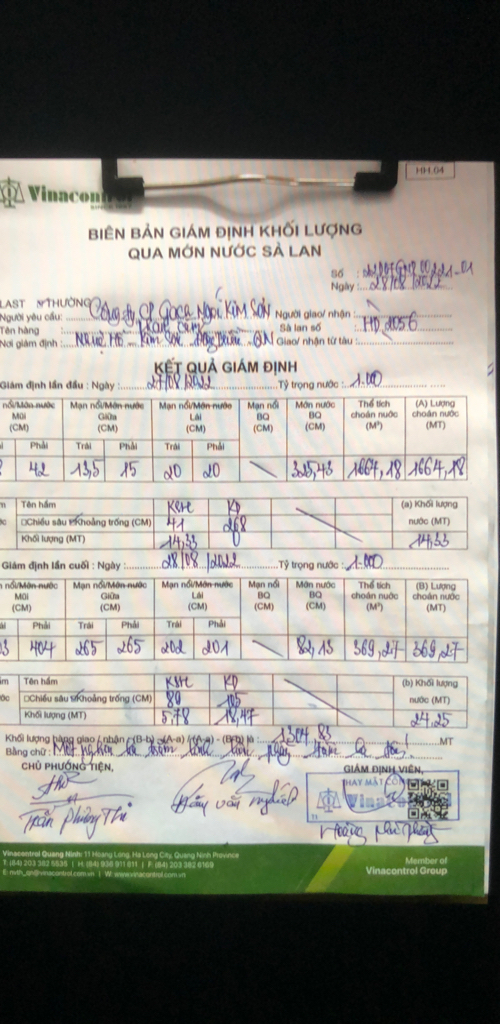 Vinacontrol
HH.04
BIÊN BẢN GIÁM ĐỊNH KHỐI LƯỢNG
QUA MỚN NƯỚC SÀ LAN
Số :
Ngày: 28/08/2022
LAST THƯỜNG
Người yêu cầu: Công ty CP Gạch Ngói Kim Sơn Người giao/ nhận :
Tên hàng : Sà lan số : HD 2056
Nơi giám định : Kim Sơn QN Giao/ nhận từ tàu :
KẾT QUẢ GIÁM ĐỊNH
Giám định lần đầu : Ngày : 27/08/2022 Tỷ trọng nước : 1.000
nổi/Món nước Mũi (CM) Mạn nổi/Món nước Giữa (CM) Mạn nổi/Món nước Lái (CM) Mạn nổi BQ (CM) Món nước BQ (CM) Thể tích choán nước (M³) (A) Lượng choán nước (MT)
Phải Trái Phải Trái Phải
42 13,5 15 20 20 325,43 1664,18 1664,18
Tên hầm (a) Khối lượng nước (MT)
Chiều sâu Khoảng trống (CM) 41 268
Khối lượng (MT) 14,33 14,33
Giám định lần cuối : Ngày : 28/08/2022 Tỷ trọng nước : 1.000
nổi/Món nước Mũi (CM) Mạn nổi/Món nước Giữa (CM) Mạn nổi/Món nước Lái (CM) Mạn nổi BQ (CM) Món nước BQ (CM) Thể tích choán nước (M³) (B) Lượng choán nước (MT)
Phải Trái Phải Trái Phải
404 265 265 202 201 82,13 369,27 369,27
Tên hầm (b) Khối lượng nước (MT)
Chiều sâu Khoảng trống (CM) 80 105
Khối lượng (MT) 5,78 18,47 24,25
Khối lượng hàng giao / nhận (B-b) - (A-a) / (A-a) - (B-b) là : 1304,83 MT
Bằng chữ : Một nghìn ba trăm linh bốn phẩy tám ba tấn!
CHỦ PHƯƠNG TIỆN, GIÁM ĐỊNH VIÊN,
THAY MẶT
Vinacontrol
Trần Phương Thi Phạm văn Nghiệp
Vinacontrol Quang Ninh: 11 Hoang Long, Ha Long City, Quang Ninh Province
T: (84) 203 382 6538 | H: (84) 936 911 611 | F: (84) 203 382 6169
E: nvth_qn@vinacontrol.com.vn | W: www.vinacontrol.com.vn
Member of
Vinacontrol Group